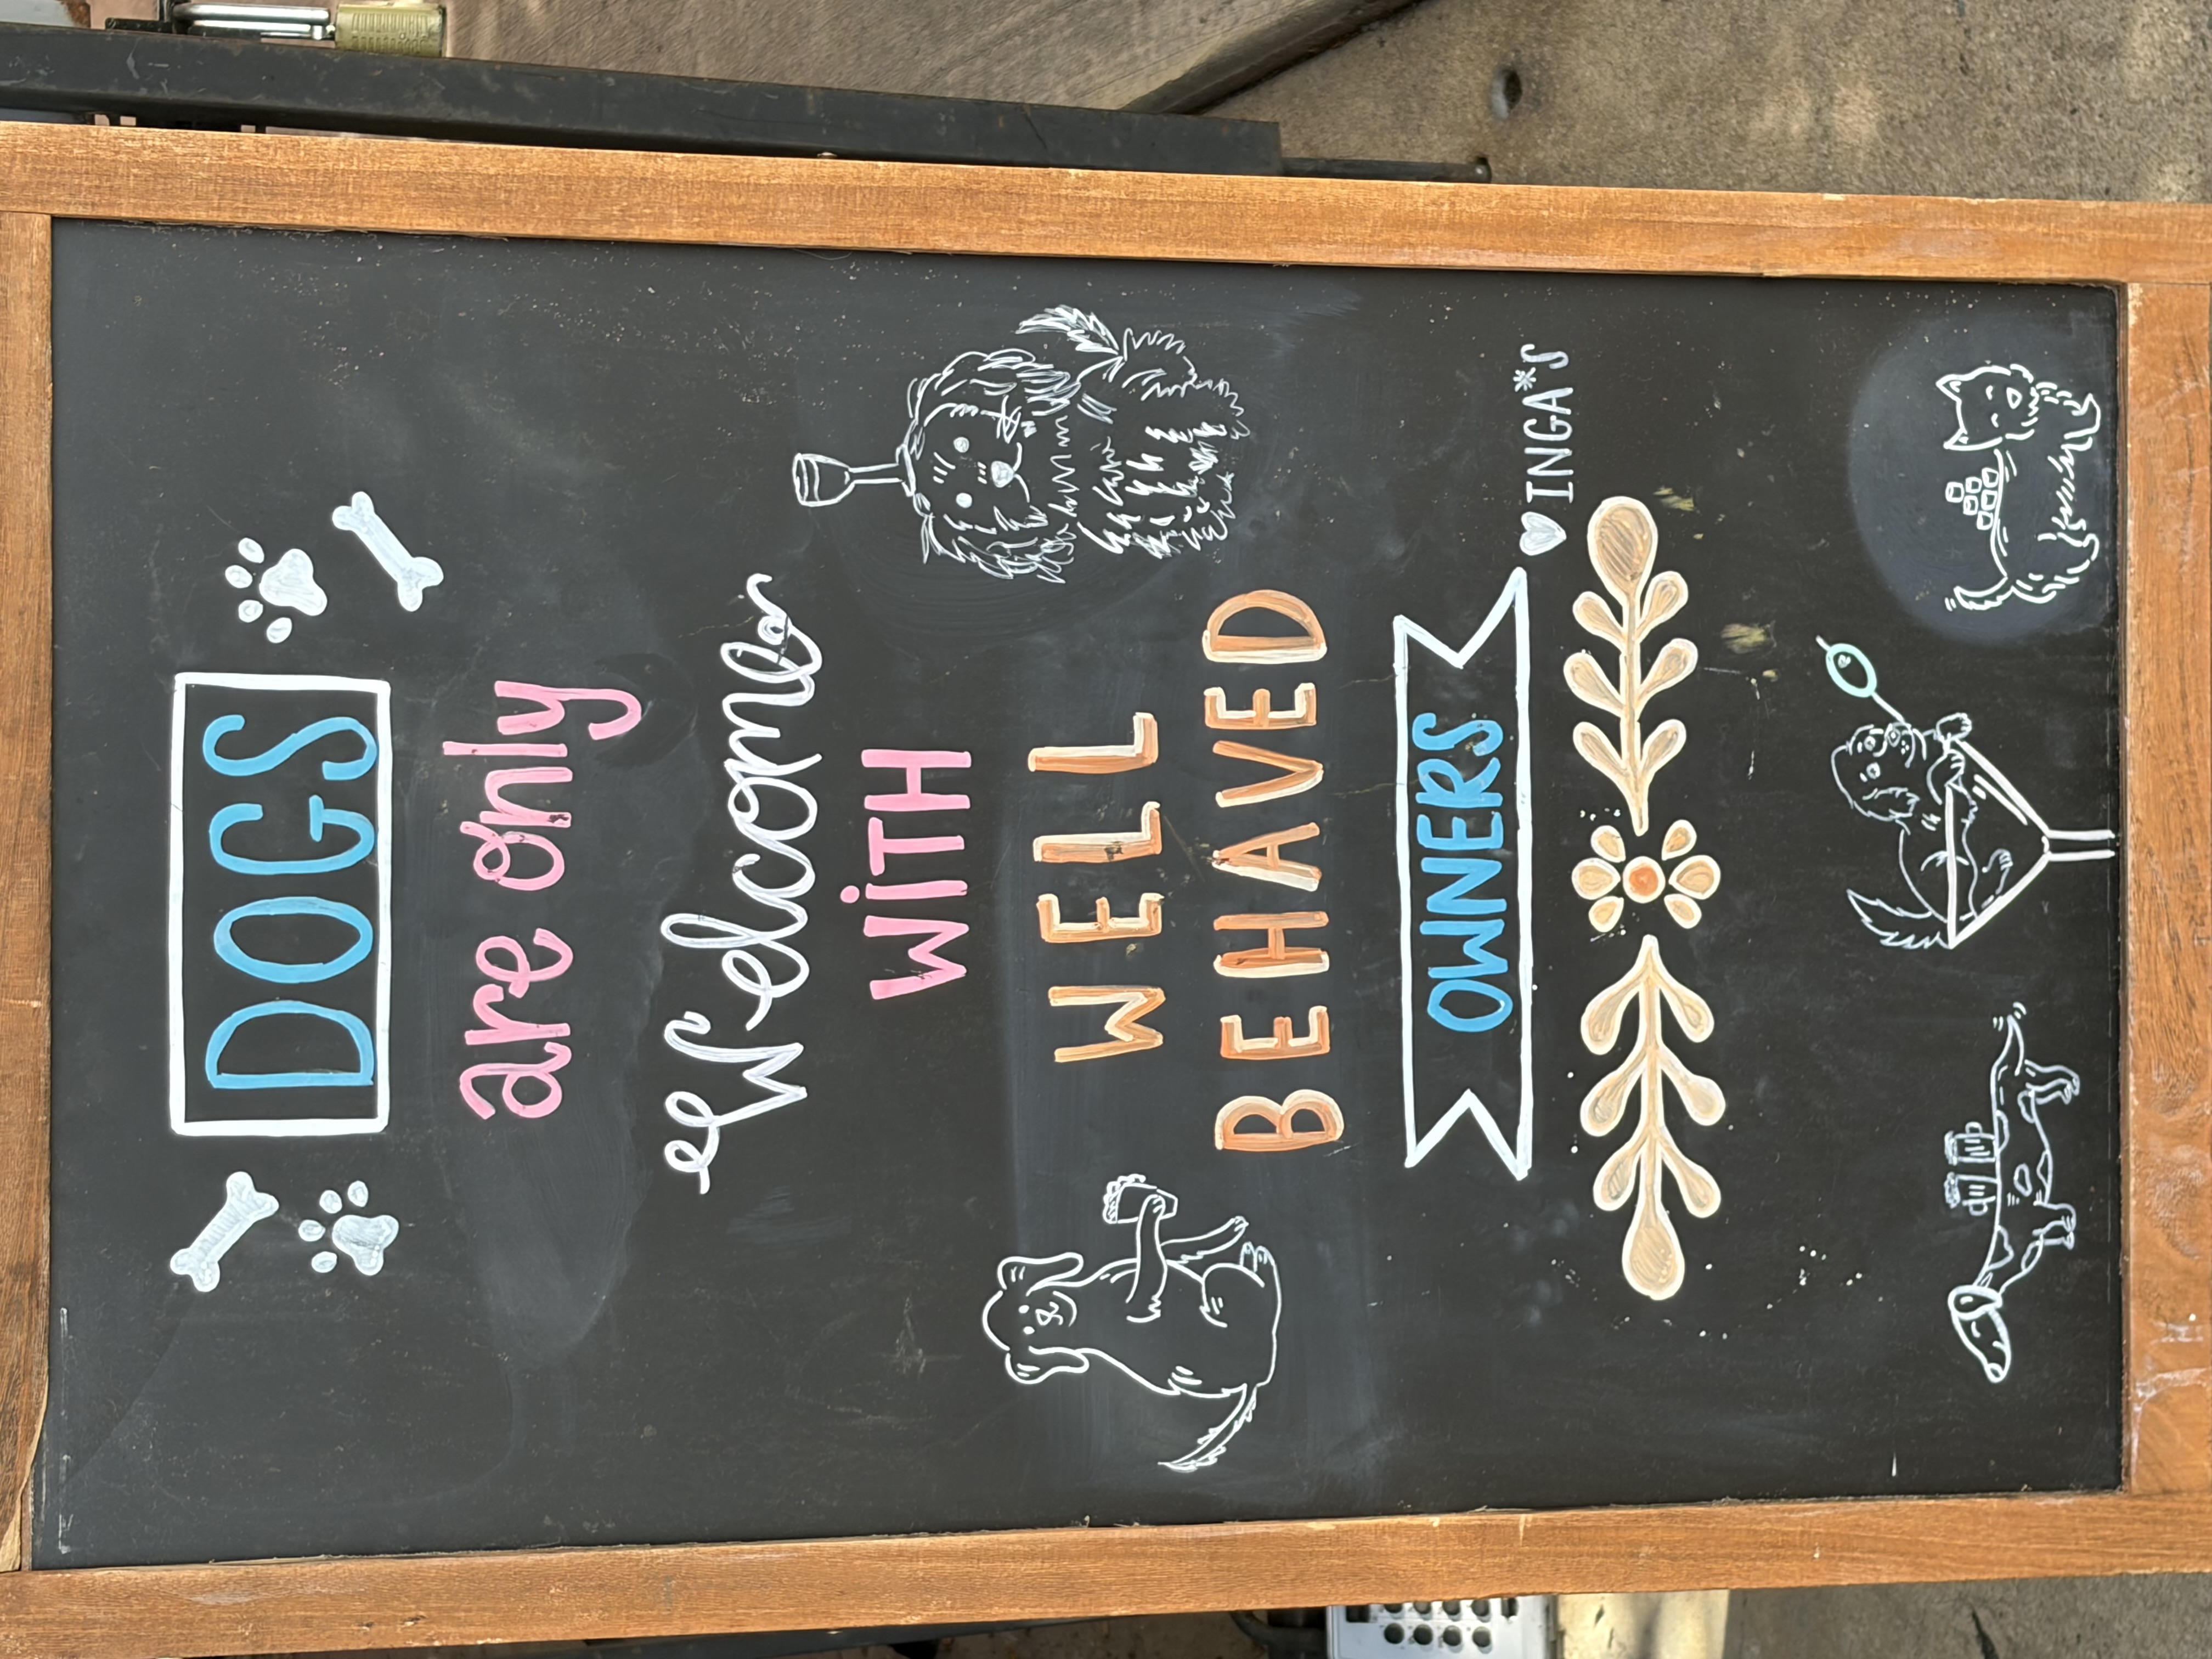 DOGS
are only
welcome
WiTH
WELL
BEHAVED
OWNERS
♥ INGA*S